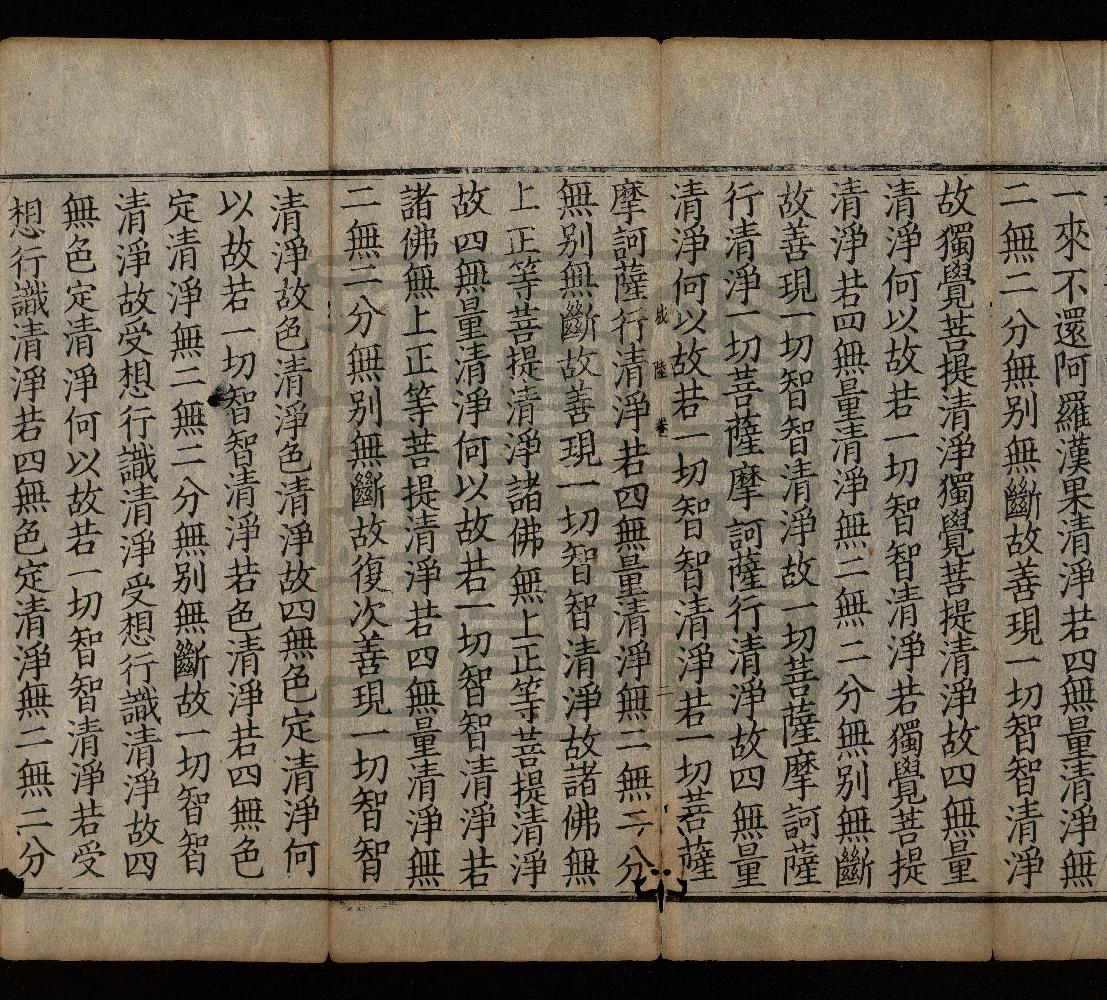 一來不還阿羅漢果清淨若四無量清淨無
二無二分無别無斷故善現一切智智清淨
故獨覺菩提清淨獨覺菩提清淨故四無量
清淨何以故若一切智智清淨若獨覺菩提
清淨若四無量清淨無二無二分無别無斷
故善現一切智智清淨故一切菩薩摩訶薩
行清淨一切菩薩摩訶薩行清淨故四無量
清淨何以故若一切智智清淨若一切菩薩
摩訶薩行清淨若四無量清淨無二無二分
無别無斷故善現一切智智清淨故諸佛無
上正等菩提清淨諸佛無上正等菩提清淨
故四無量清淨何以故若一切智智清淨若
諸佛無上正等菩提清淨若四無量清淨無
二無二分無别無斷故復次善現一切智智
清淨故色清淨色清淨故四無色定清淨何
以故若一切智智清淨若色清淨若四無色
定清淨無二無二分無别無斷故一切智智
清淨故受想行識清淨受想行識清淨故四
無色定清淨何以故若一切智智清淨若受
想行識清淨若四無色定清淨無二無二分